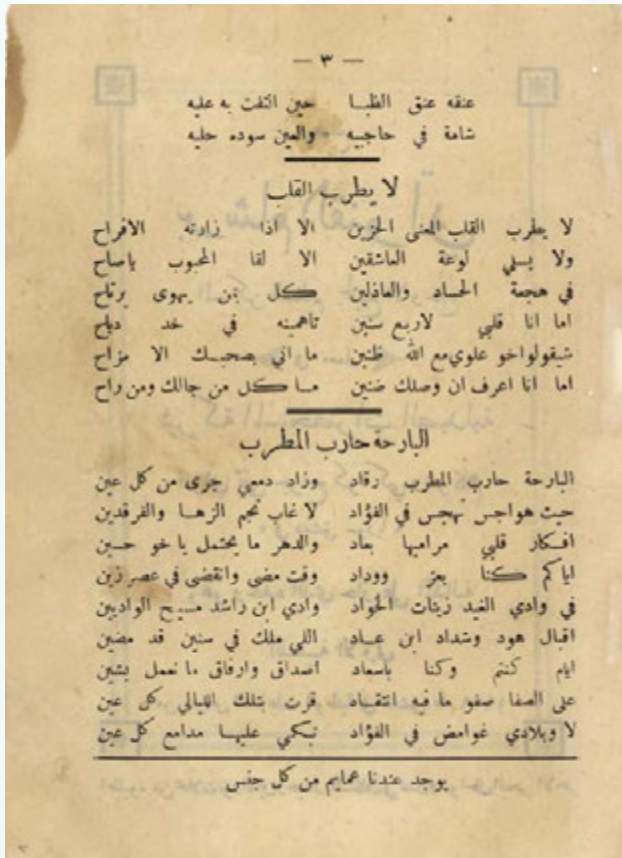 — ٣ —
عنقه عنق الظبا حين التفت به عليه
شامة في حاجبيه والعين سوده حليه
لا يطرب القلب
لا يطرب القلب المعنى الحزين الا اذا زارته الافراح
ولا يسلي لوعة العاشقين الا لقا المحبوب ياصاح
في هجعة الحساد والعاذلين كل بمن يهوى يرتاح
اما انا قلبي لاربع سنين تاهمينه في خد دباح
شيقولواخو علوي مع الله ظنين ما اني بصحبك الا مزاح
اما انا اعرف ان وصلك ضنين ما كل من جالك ومن راح
البارحة حارب المطرب
البارحة حارب المطرب رقاد وزاد دمعي جرى من كل عين
حيث هواجس تهجس في الفؤاد لا غاب نجم الزهـا والفرقدين
افكار قلبي مراميها بعاد والدهر ما يحتمل ياخو حسين
اياكم كنا بعز ووداد وقت مضى وانقضى في عصر زين
في وادي الغيد زينات الخواد وادي ابن راشد مسيح الواديين
اقبال هود وشداد ابن عاد اللي ملك في سنين قد مضين
ايام كنتم وكنا باسعاد اصداق وارفاق ما نعمل بشين
على الصفا صفو ما فيه انتقاد قرت بتلك الليالي كل عين
لا وبلادي غوامض في الفؤاد تبكي عليها مدامع كل عين
يوجد عندنا عمايم من كل جنس